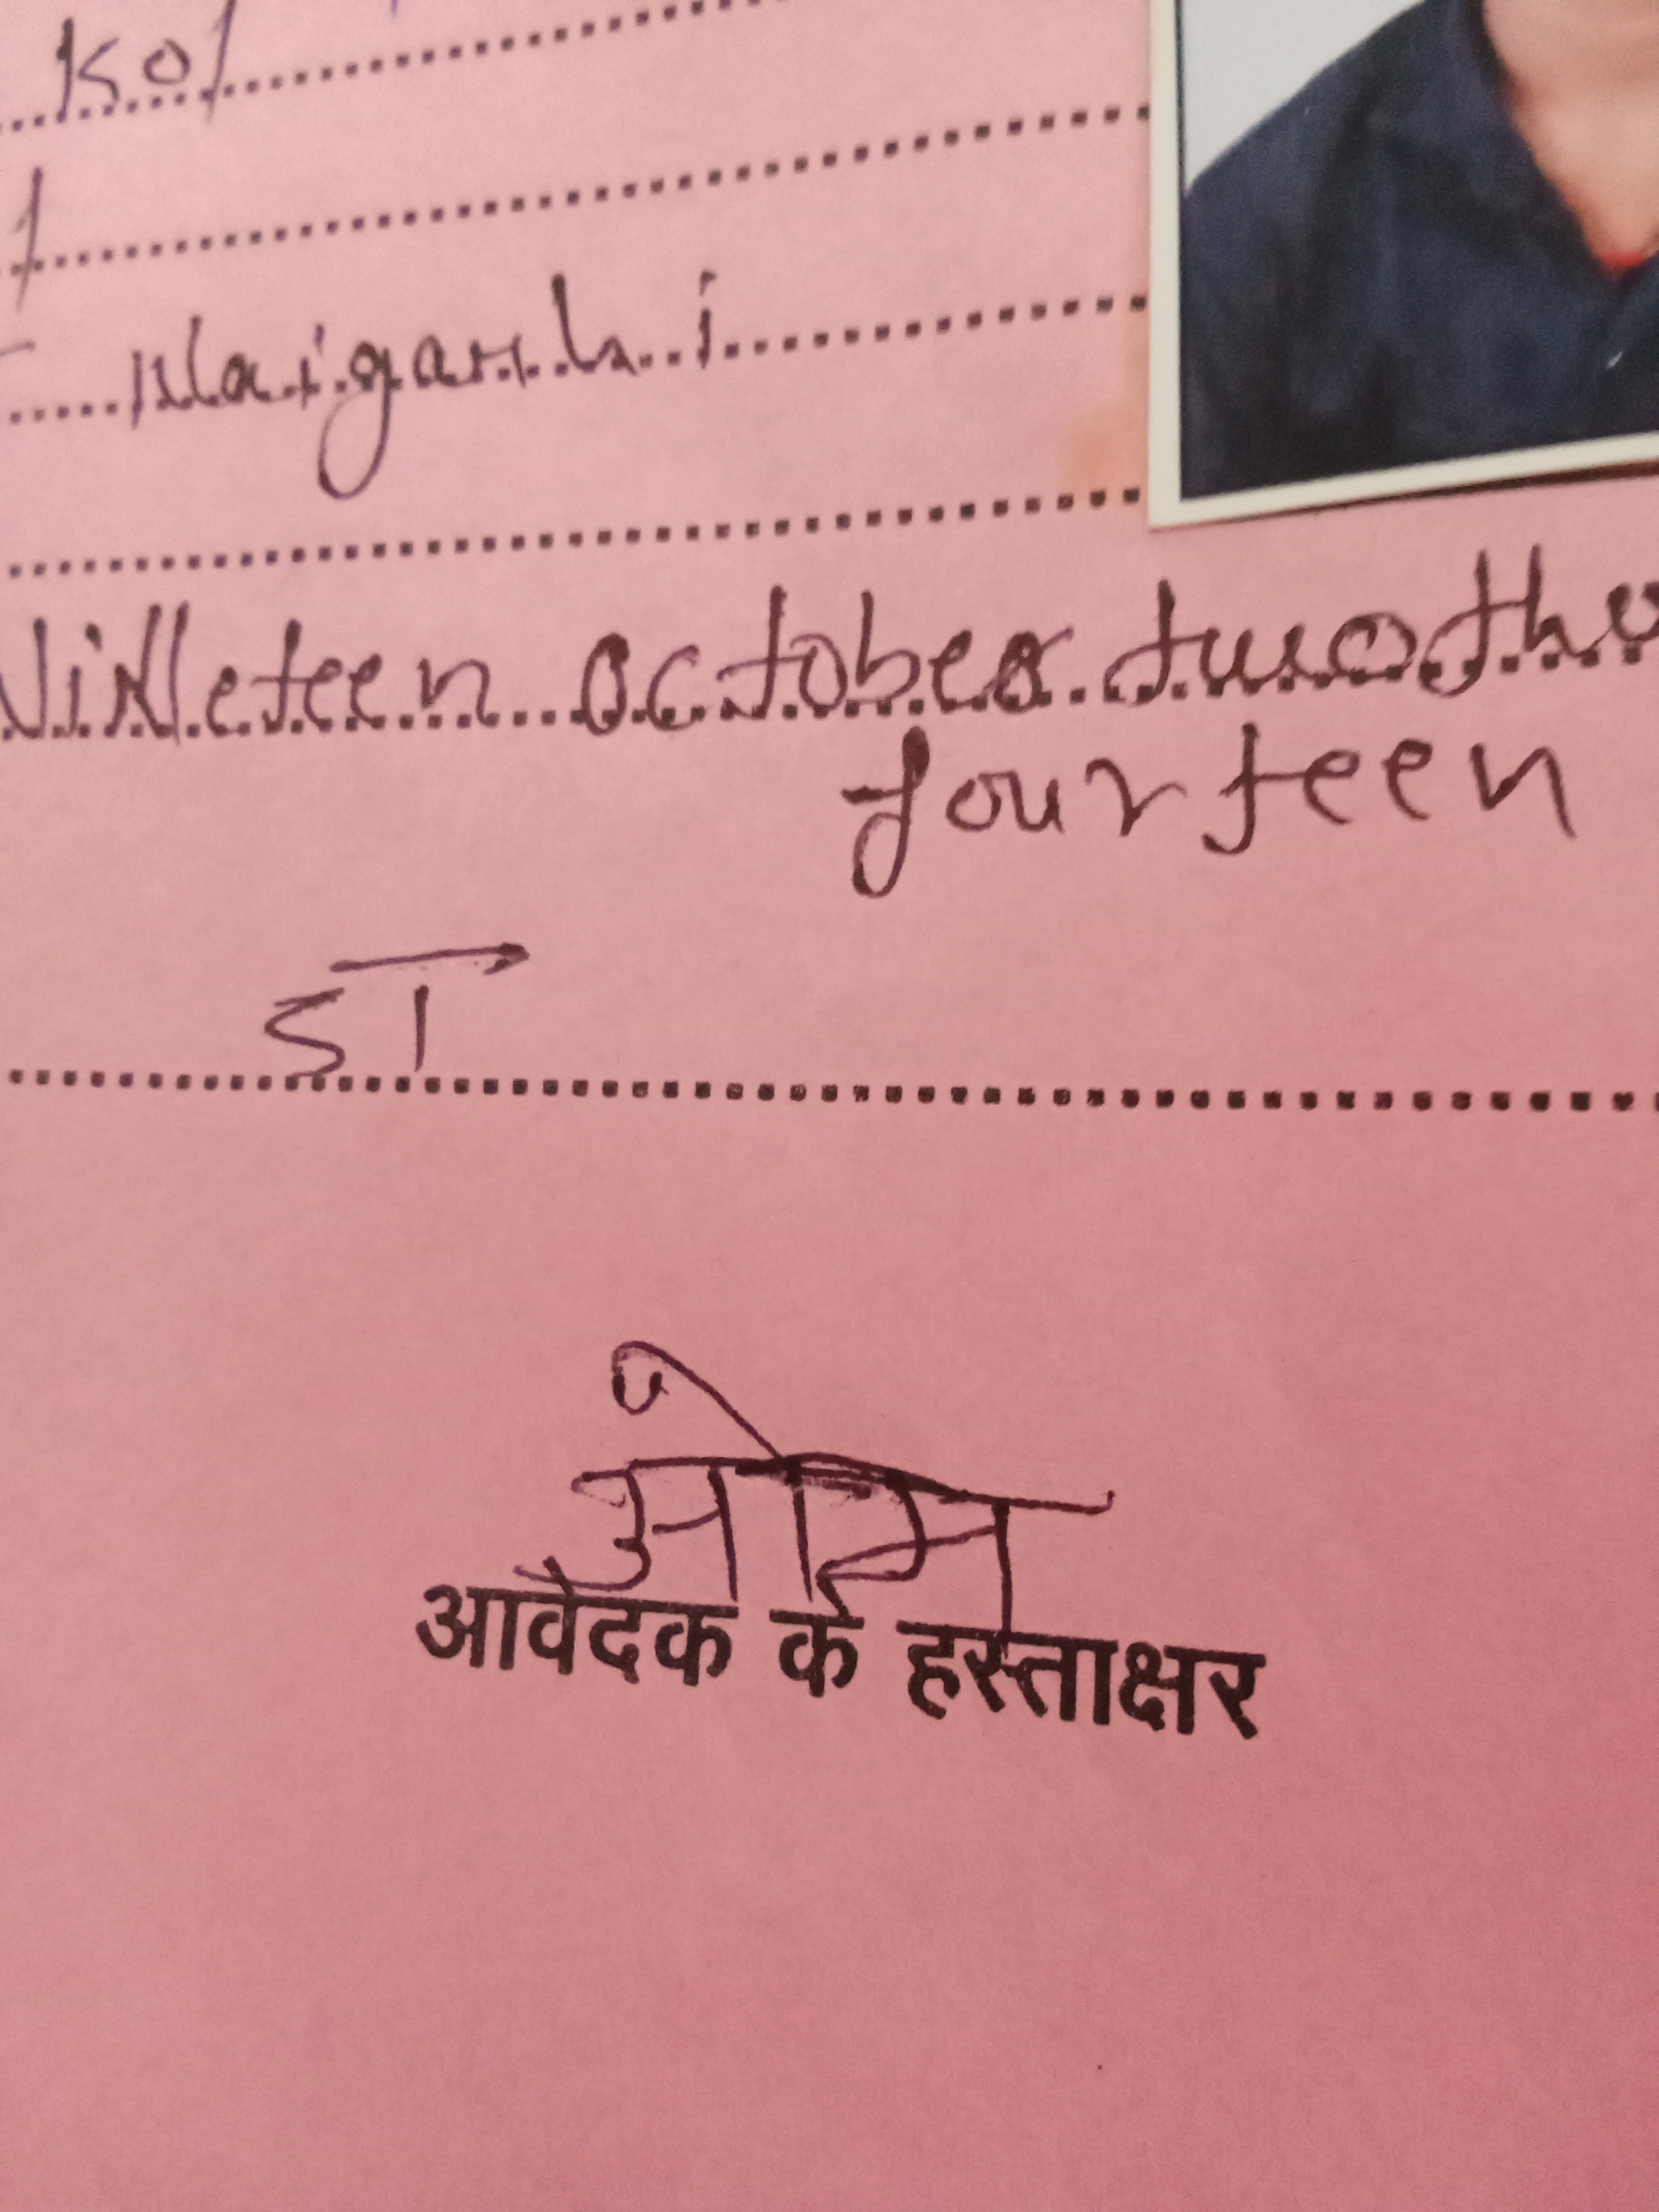 Kol
l
Naigarhi
Ninleteen october two thou
fourteen
ST
ओम
आवेदक के हस्ताक्षर